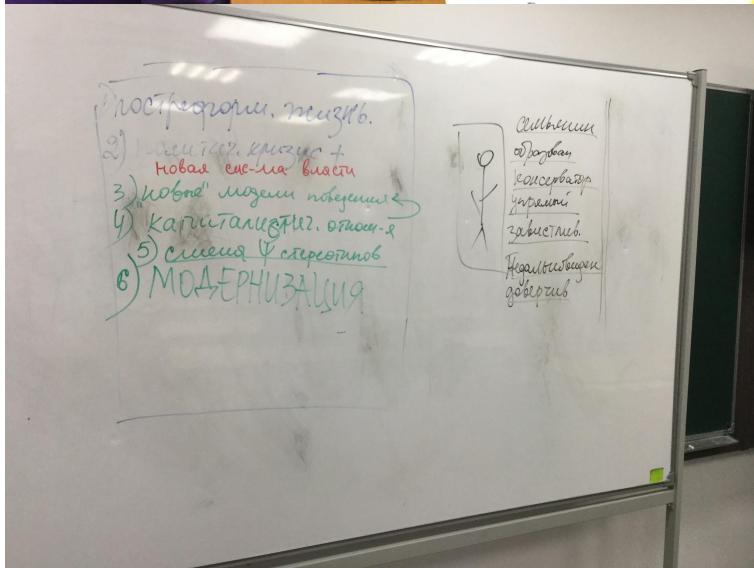 1) постреформ. жизнь.
2) политич. кризис +
новая сис-ма власти
3) "новые" модели поведения
4) капиталистич. относ-я
5) смена Ψ стереотипов
6) МОДЕРНИЗАЦИЯ
семьянин
образован
консерватор
упрямый
завистлив.
Недальновиден
доверчив